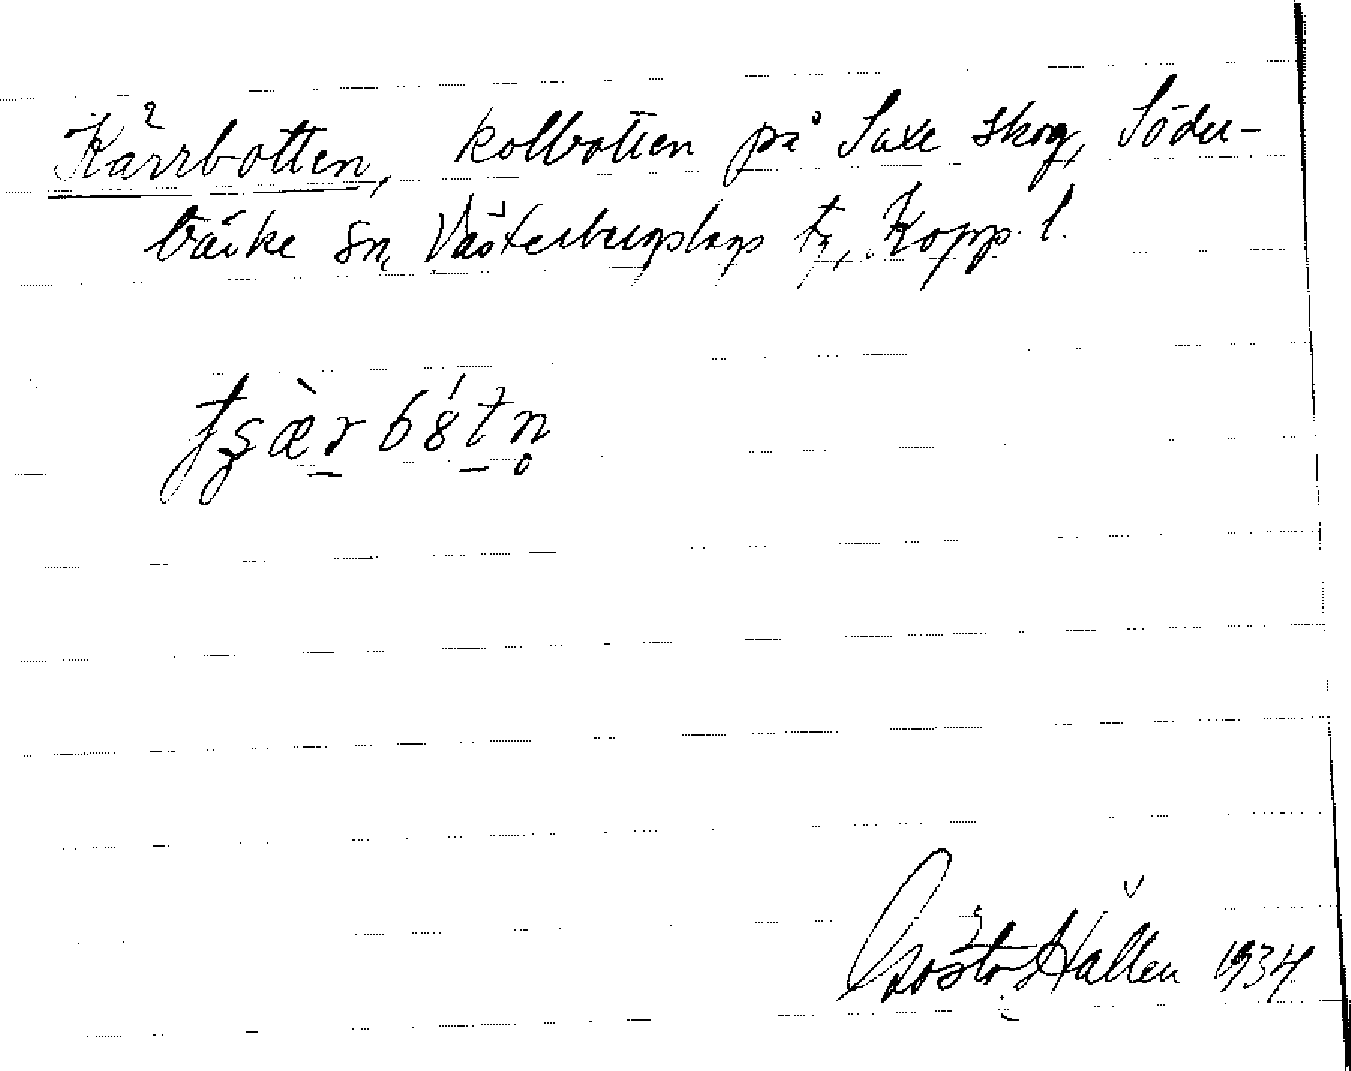 Kärrbotten, kolbotten på Saxe skog, Söder-
bärke sn, Västerbergslags tg, Kopp. l.
Gösta Hallén 1934